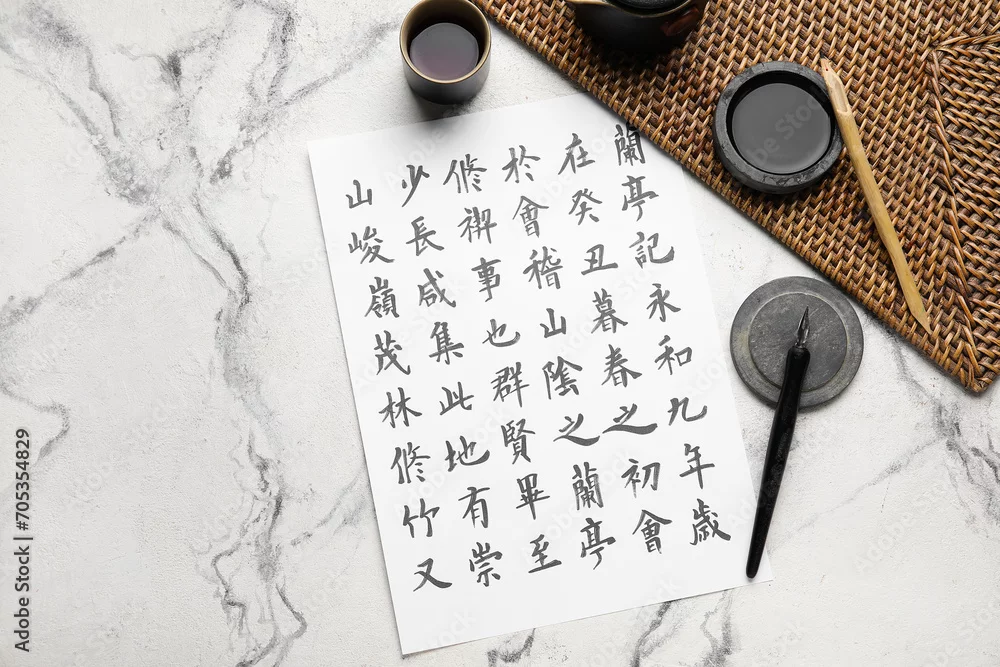 蘭亭記永和九年歲
在癸丑暮春之初會
於會稽山陰之蘭亭
修禊事也群賢畢至
少長咸集此地有崇
山峻嶺茂林修竹又
Adobe Stock | #705354829
Adobe Stock